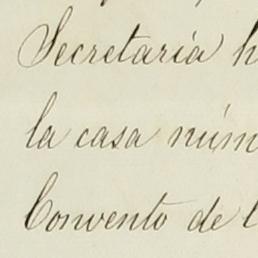 Secretaría h
la casa núm
Convento de l